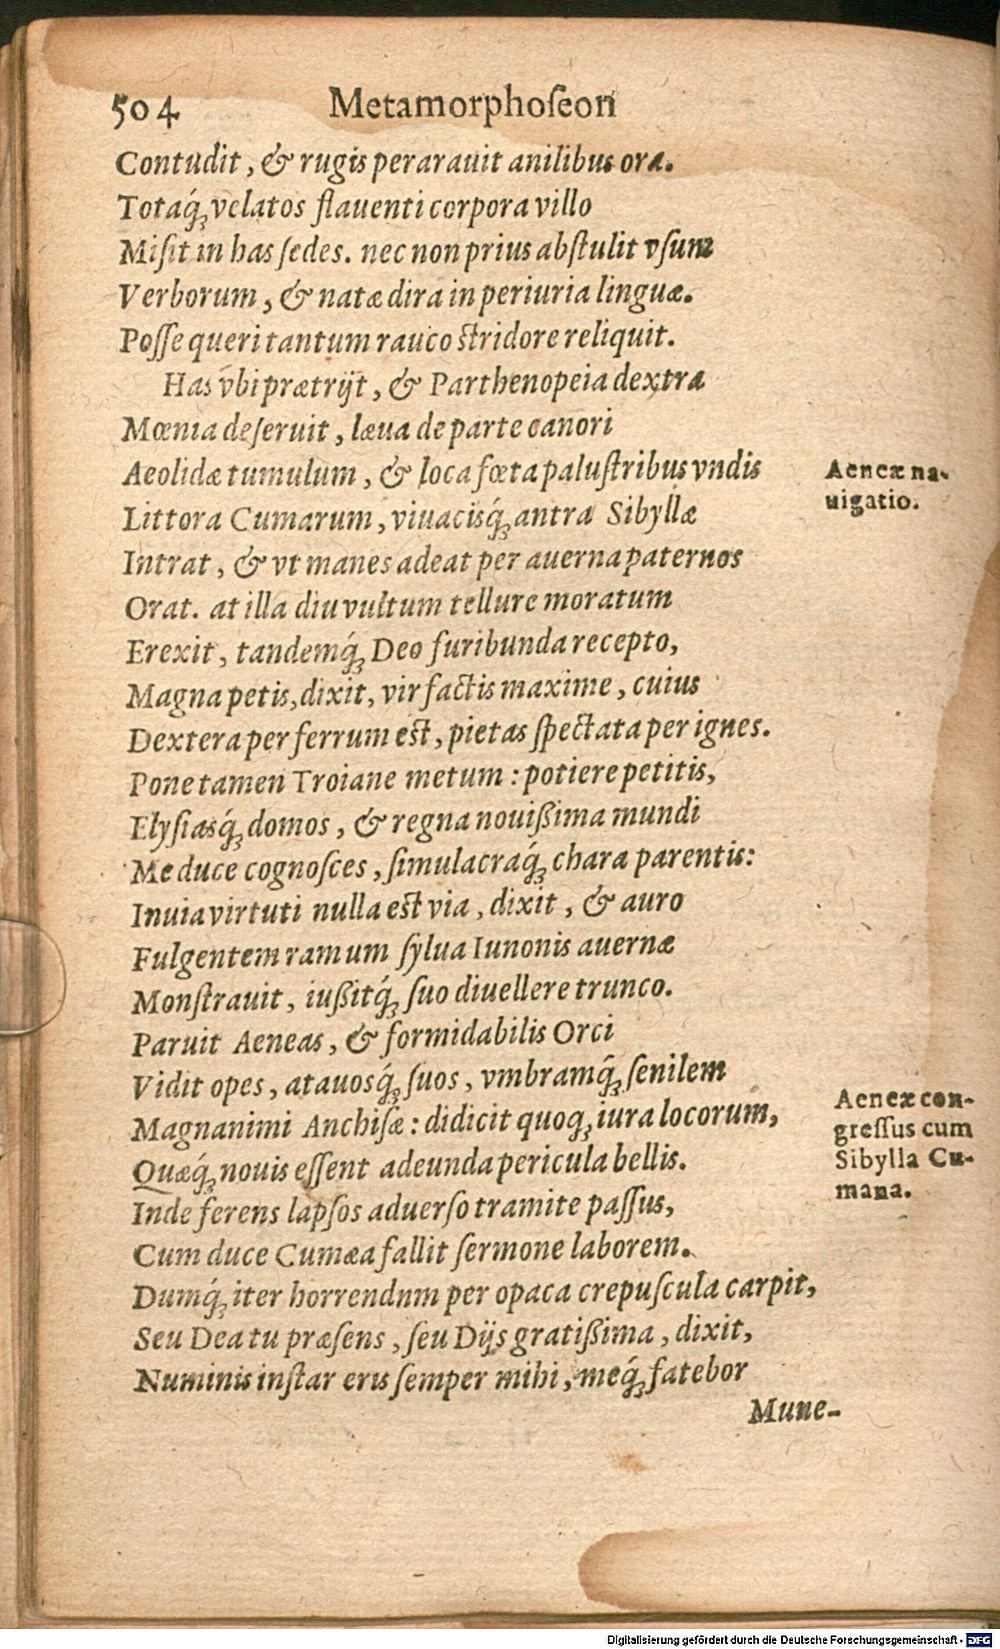 504 Metamorphoſeon
Contudit, & rugis perarauit anilibus ora.
Totaq́ꝫ velatos flauenti corpora villo
Miſit in has ſedes. nec non prius abſtulit vſum
Verborum, & natæ dira in periuria linguæ.
Poſſe queri tantum rauco ſtridore reliquit.
Has vbi prætrijt, & Parthenopeia dextra
Mœnia deſeruit, læua de parte canori
Aeolidæ tumulum, & loca fœta paluſtribus vndis
Aeneæ na-
uigatio.
Littora Cumarum, viuacisq́ꝫ antra Sibyllæ
Intrat, & vt manes adeat per auerna paternos
Orat. at illa diu vultum tellure moratum
Erexit, tandemq́ꝫ Deo furibunda recepto,
Magna petis, dixit, vir factis maxime, cuius
Dextera per ferrum eſt, pietas ſpectata per ignes.
Pone tamen Troiane metum: potiere petitis,
Elyſiasq́ꝫ domos, & regna nouißima mundi
Me duce cognoſces, ſimulacraq́ꝫ chara parentis:
Inuia virtuti nulla eſt via, dixit, & auro
Fulgentem ramum ſylua Iunonis auernæ
Monſtrauit, iußitq́ꝫ ſuo diuellere trunco.
Paruit Aeneas, & formidabilis Orci
Vidit opes, atauosq́ꝫ ſuos, vmbramq́ꝫ ſenilem
Magnanimi Anchiſæ: didicit quoqꝫ iura locorum,
Quæq́ꝫ nouis eſſent adeunda pericula bellis.
Aeneæ con-
greſſus cum
Sibylla Cu-
mana.
Inde ferens lapſos aduerſo tramite paſſus,
Cum duce Cumæa fallit ſermone laborem.
Dumq́ꝫ iter horrendnm per opaca crepuſcula carpit,
Seu Dea tu præſens, ſeu Dijs gratißima, dixit,
Numinis inſtar eris ſemper mihi, meq́ꝫ fatebor
Mune-
Digitalisierung gefördert durch die Deutsche Forschungsgemeinschaft - DFG